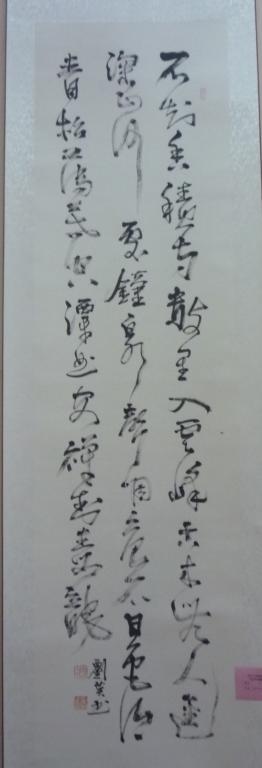 不知香積寺數里入雲峰古木無人徑
深山何處鐘泉聲咽危石日色冷
青松薄暮空潭曲安禪制毒龍
劉英书